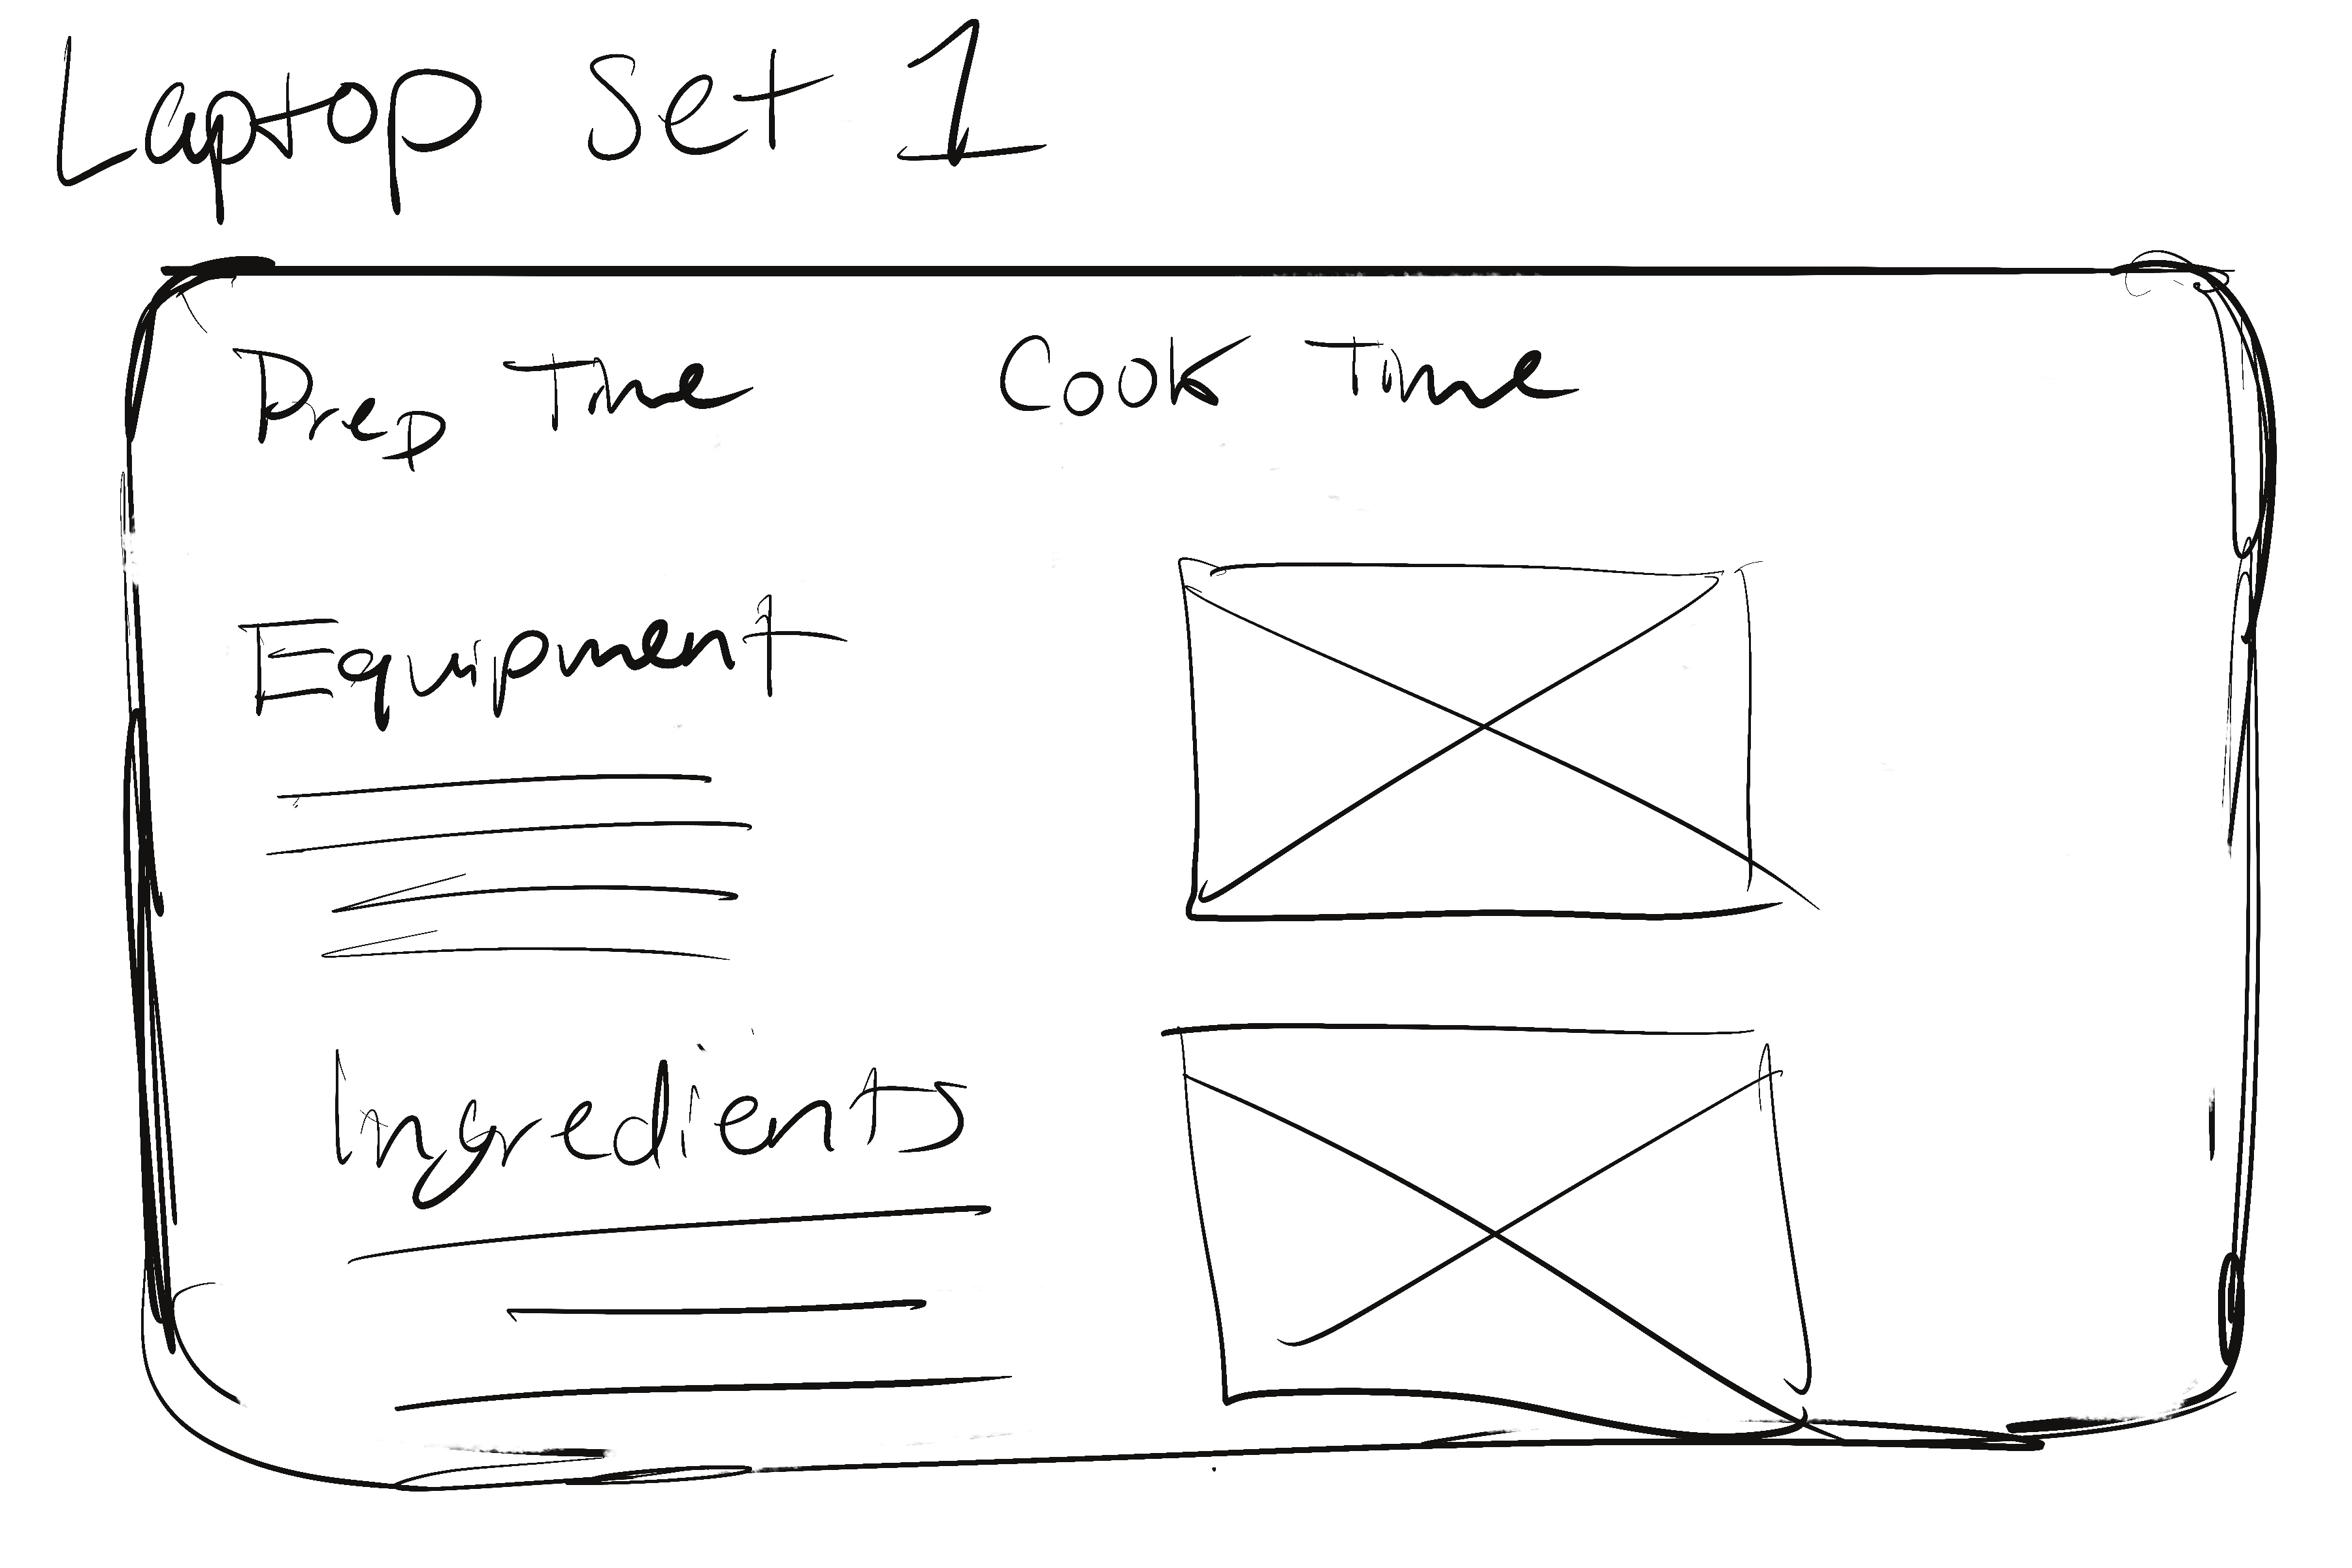 Laptop Set 1
Prep Time Cook Time
Equipment
Ingredients